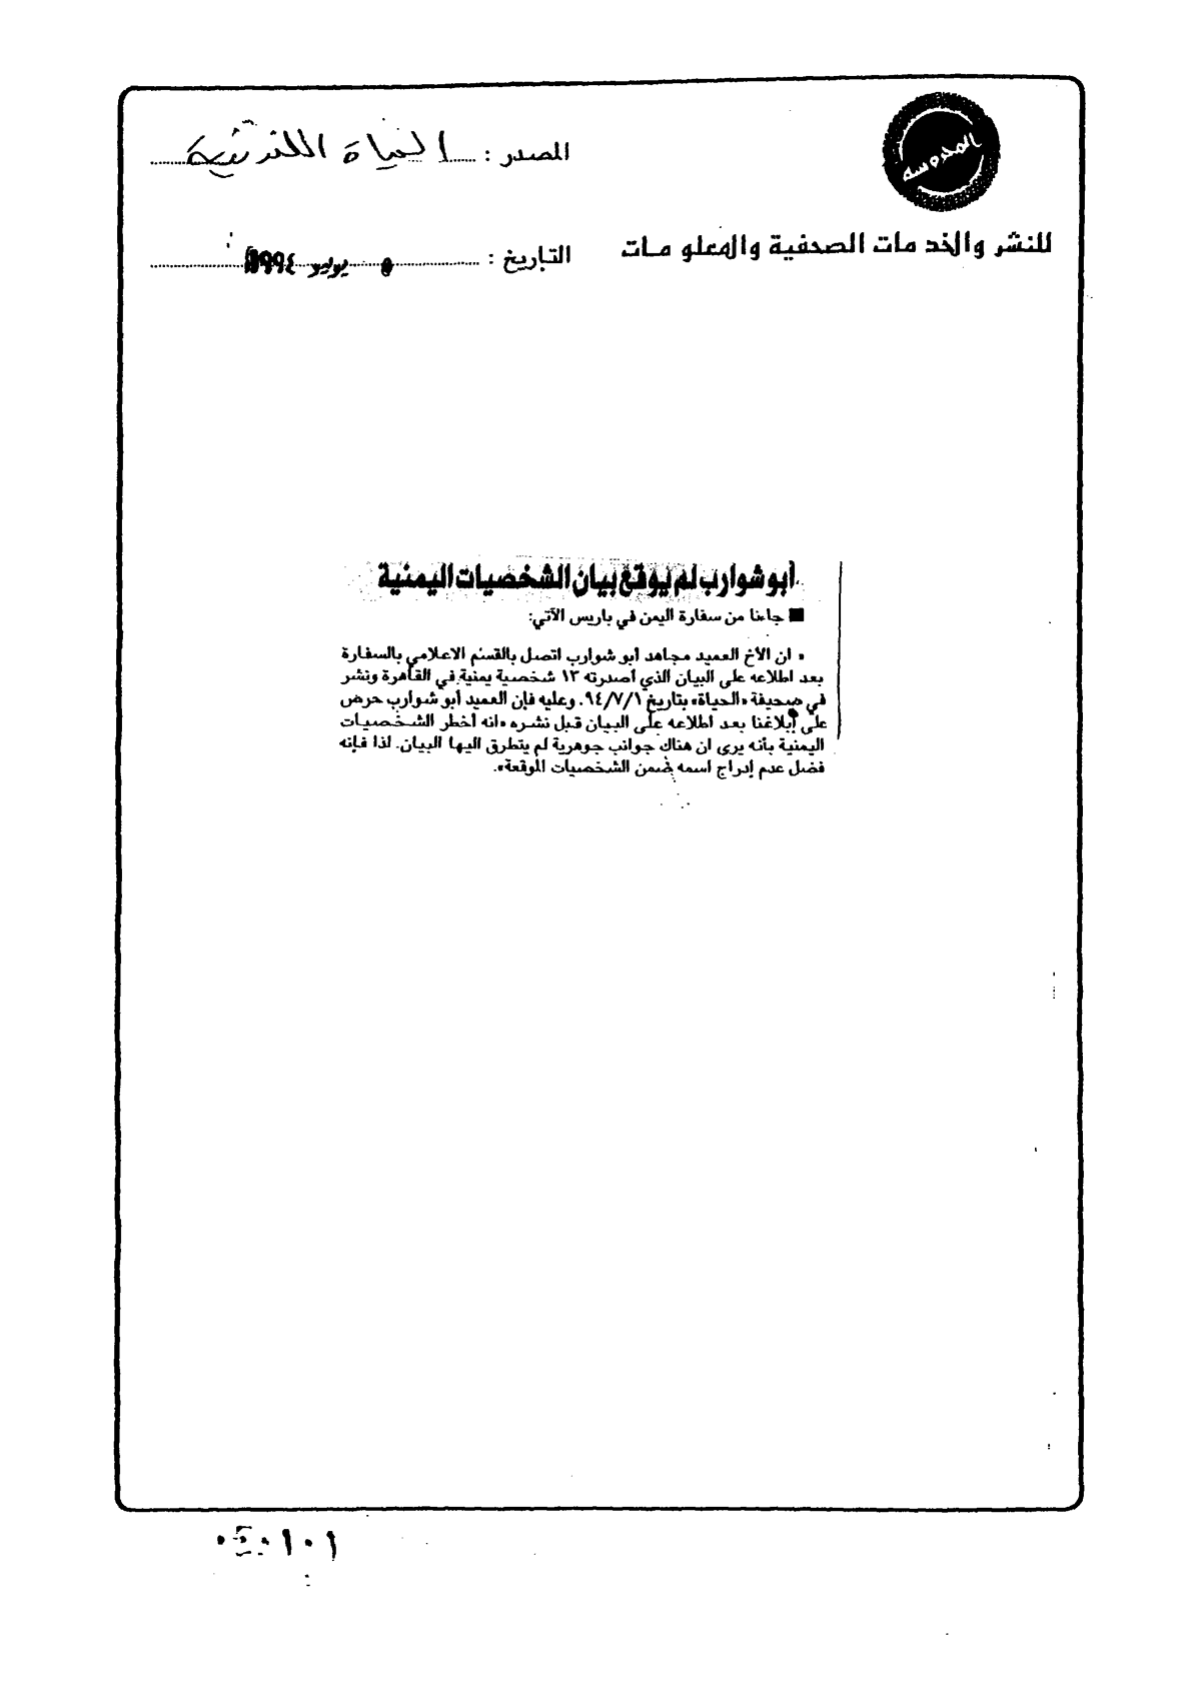 المحروسة
المصدر : الحياة اللندنية
للنشر والخدمات الصحفية والمعلومات
التاريخ : ٥ يوليو ١٩٩٤
أبو شوارب لم يوقع بيان الشخصيات اليمنية
■ جاءنا من سفارة اليمن في باريس الآتي:
« ان الأخ العميد مجاهد أبو شوارب اتصل بالقسم الاعلامي بالسفارة
بعد اطلاعه على البيان الذي اصدرته ١٣ شخصية يمنية في القاهرة ونشر
في صحيفة «الحياة» بتاريخ ٩٤/٧/١. وعليه فإن العميد أبو شوارب حرص
على إبلاغنا بعد اطلاعه على البيان قبل نشره «انه أخطر الشخصيات
اليمنية بأنه يرى ان هناك جوانب جوهرية لم يتطرق اليها البيان. لذا فإنه
فضل عدم إدراج اسمه ضمن الشخصيات الموقعة».